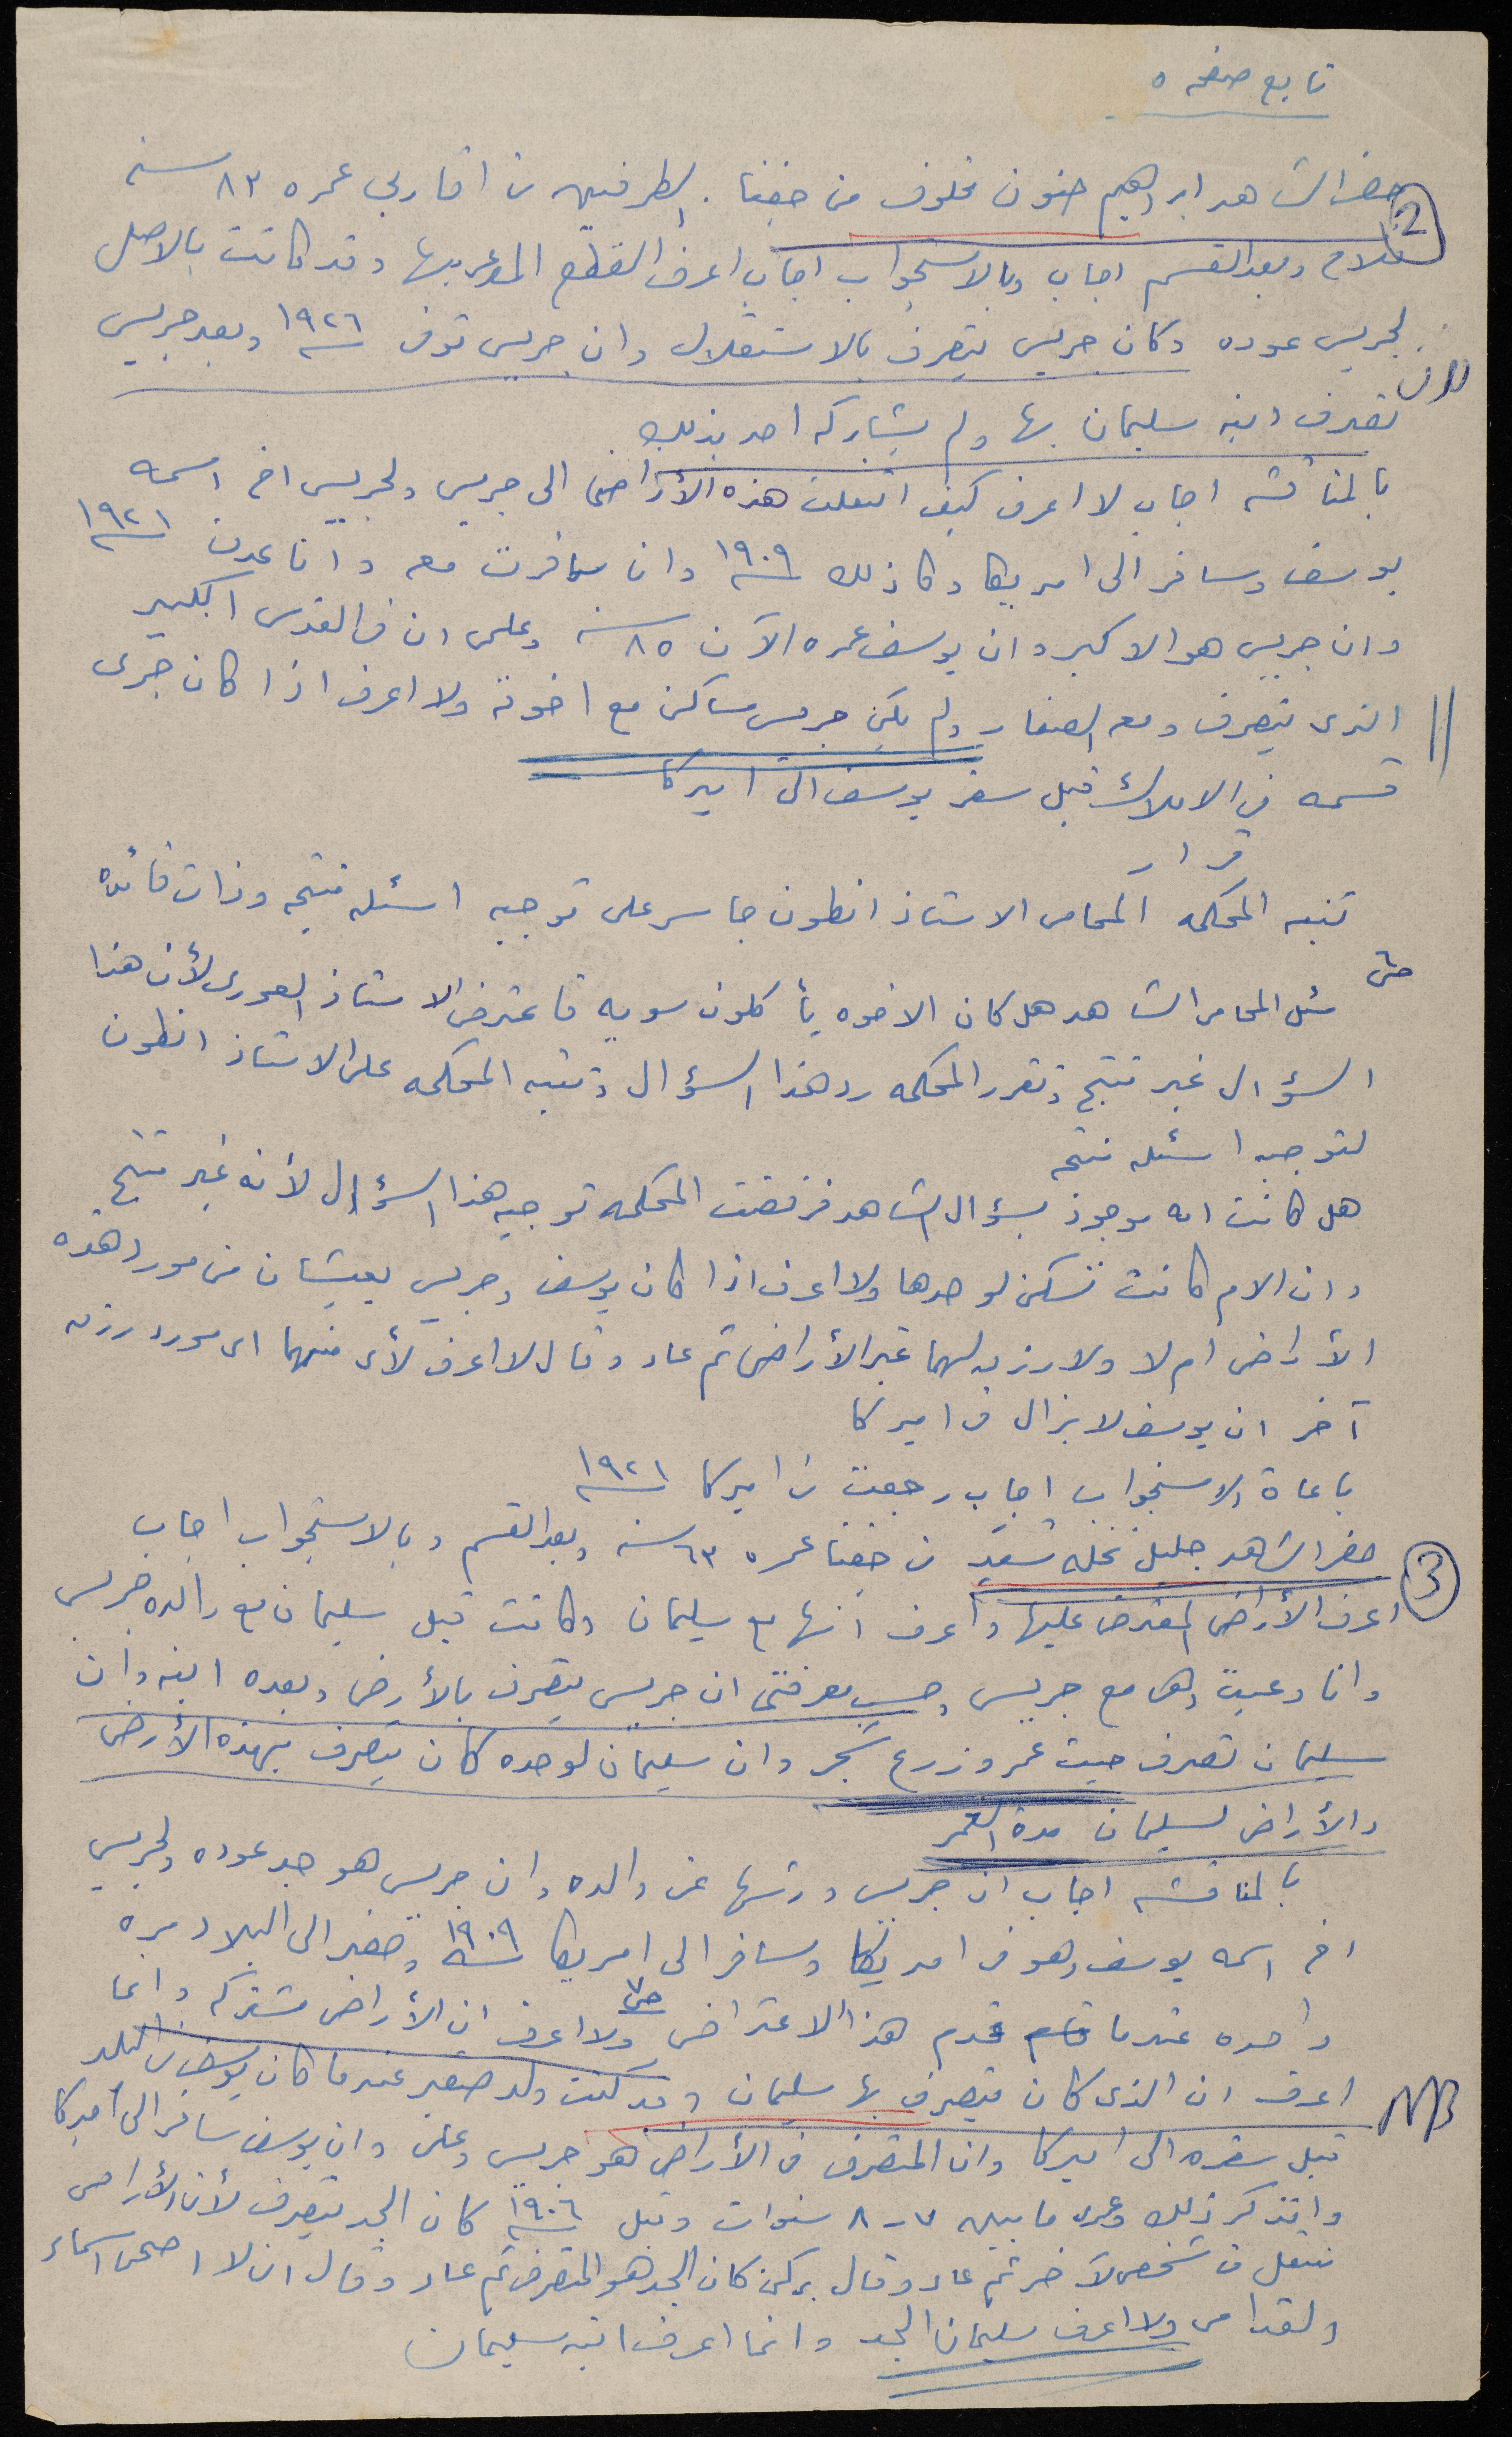 تابع صفحه ٥
2
حضر الشاهد ابراهيم حنون مخلوف من جفنا . الطرفين من اقاربي عمره ٨٣ سنه
فلاح وبعد القسم اجاب وبالاستجواب اجاب اعرف القطع المدعى بها وقد كانت بالاصل
لجريس عوده وكان جريس يتصرف بالاستقلال وان جريس توفى سنة ١٩٢٦ وبعد جريس
تصرف ابنه سليمان بها ولم يشاركه احد بذلك
بالمناقشه اجاب لا اعرف كيف انتقلت هذه الأراضي الى جريس ولجريس اخ اسمه
يوسف وسافر الى امريكا وكان ذلك سنة ١٩٠٩ وان سافرت معه وانا عدت سنة ١٩٢١
وان جريس هو الاكبر وان يوسف عمره الآن ٨٥ سنه وعلى ان في القدس الكبير
الذي يتصرف ومعه الصغار ولم يكن جريس ساكن مع اخوته ولا اعرف اذا كان جرى
قسمه في الاملاك قبل سفر يوسف الى اميركا
قرار
تنبه المحكمه المحامي الاستاذ انطون جاسر على توجيه اسئله منتجه وذات فائده
سئل المحامي الشاهد هل كان الاخوه يأكلون سويه فاعترض الاستاذ العوري لأن هذا
السؤال غير منتج وتقرر المحكمه رد هذا السؤال وتنبه المحكمه على الاستاذ انطون
لتوجيه اسئله منتجه
هل كانت امه موجوده بسؤال الشاهد فرفضت المحكمه توجيه هذا السؤال لأنه غير منتج
وان الام كانت تسكن لوحدها ولا اعرف اذا كان يوسف وجريس يعيشان من مورد هذه
الأراضي ام لا ولا رزق لهما غير الأراضي ثم عاد وقال لا اعرف لأي منهما اي مورد رزق
آخر ان يوسف لا يزال في اميركا
باعادة الاستجواب اجاب رجعت من اميركا سنة ١٩٢١
3
حضر الشاهد جليل نخله سعيد من جفنا عمره ٦٣ سنه وبعد القسم وبالاستجواب اجاب
اعرف الأراضي المعترض عليها واعرف انها مع سليمان وكانت قبل سليمان مع والده جريس
وانا وعيت وهي مع جريس وحسب معرفتي ان جريس يتصرف بالأرض وبعده ابنه وان
سليمان تصرف حيث عمر وزرع شجر وان سليمان لوحده كان يتصرف بهذه الأرض
والأراضي لسليمان مدة العمر
بالمناقشه اجاب ان جريس ورثها عن والده وان جريس هو جد عوده ولجريس
اخ اسمه يوسف وهو في امريكا وسافر الى امريكا سنة ١٩٠٩ وحضر الى البلاد مره
واحده عندما قدم هذا الاعتراض ولا اعرف ان الأراضي مشتركه وانما
NB
اعرف ان الذي كان متصرف بها سليمان وقد كنت ولد صغير عندما كان يوسف في البلد
قبل سفره الى اميركا وان المتصرف في الأراضي هو جريس وعلى وان يوسف سافر الى اميركا
واتذكر ذلك وعمري ما بين ٧-٨ سنوات وقبل سنة ١٩٠٦ كان الجد يتصرف لأن الأراضي
تنتقل من شخص لآخر ثم عاد وقال يمكن كان الجد هو المتصرف ثم عاد وقال ان لا اصحى اسماء
القدامى ولا اعرف سليمان الجد وانما اعرف ابنه سليمان